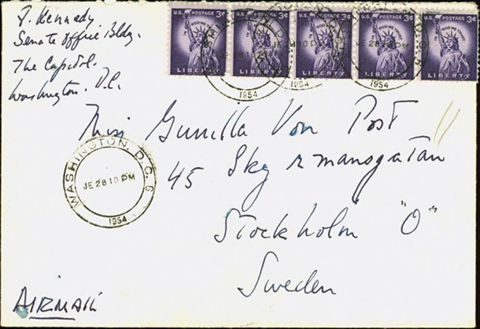 J. Kennedy
Senate Office Bldg.
The Capitol.
Washington. D.C.
U.S. POSTAGE 3¢
LIBERTY
U.S. POSTAGE 3¢
LIBERTY
U.S. POSTAGE 3¢
LIBERTY
U.S. POSTAGE 3¢
LIBERTY
U.S. POSTAGE 3¢
LIBERTY
1954
1954
1954
Miss Gunilla Von Post
45 Skeppsmansgatan
Stockholm "Ö"
Sweden
WASHINGTON, D.C. 6
JE 28 10 PM
1954
AIRMAIL